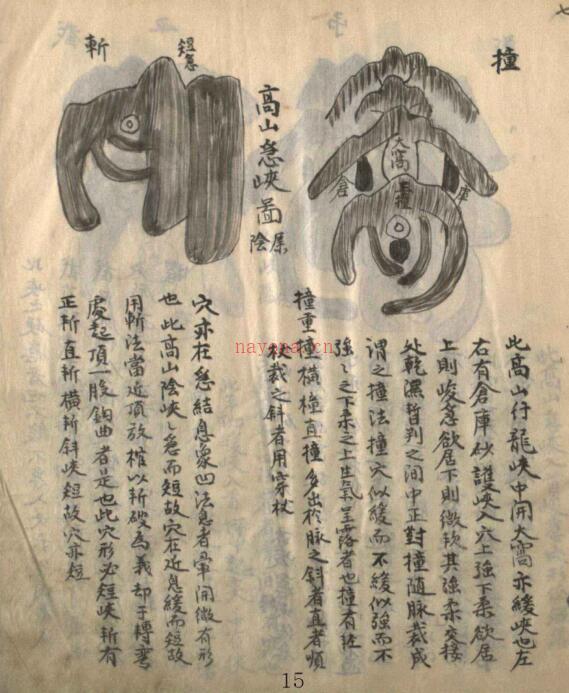 撞
大窩
撞
倉
庫
此高山行龍峽中開大窩亦緩峽也左
右有倉庫砂護峽入穴上強下柔欲居
上則峻急欲居下則微軟其強柔交接
处乾濕暫判之间中正對撞随脉裁成
謂之撞法撞穴似緩而不緩似強而不
強強之下柔之上生氣呈露者也撞有
撞重撞橫撞直撞多出於脉之斜者直者順
杖裁之斜者用穿杖
高山急峽圖
屬陰
短急
斬
穴亦在急結息象凹法息者暈開微有形
也此高山陰峽急而短故穴在近息緩而短故
用斬法當近頂放棺以斬破為義却于轉彎
處起頂一股鈎曲者是也此穴形必短峽斬有
正斬直斬橫斬斜峽短故穴亦短
nayona.cn
15